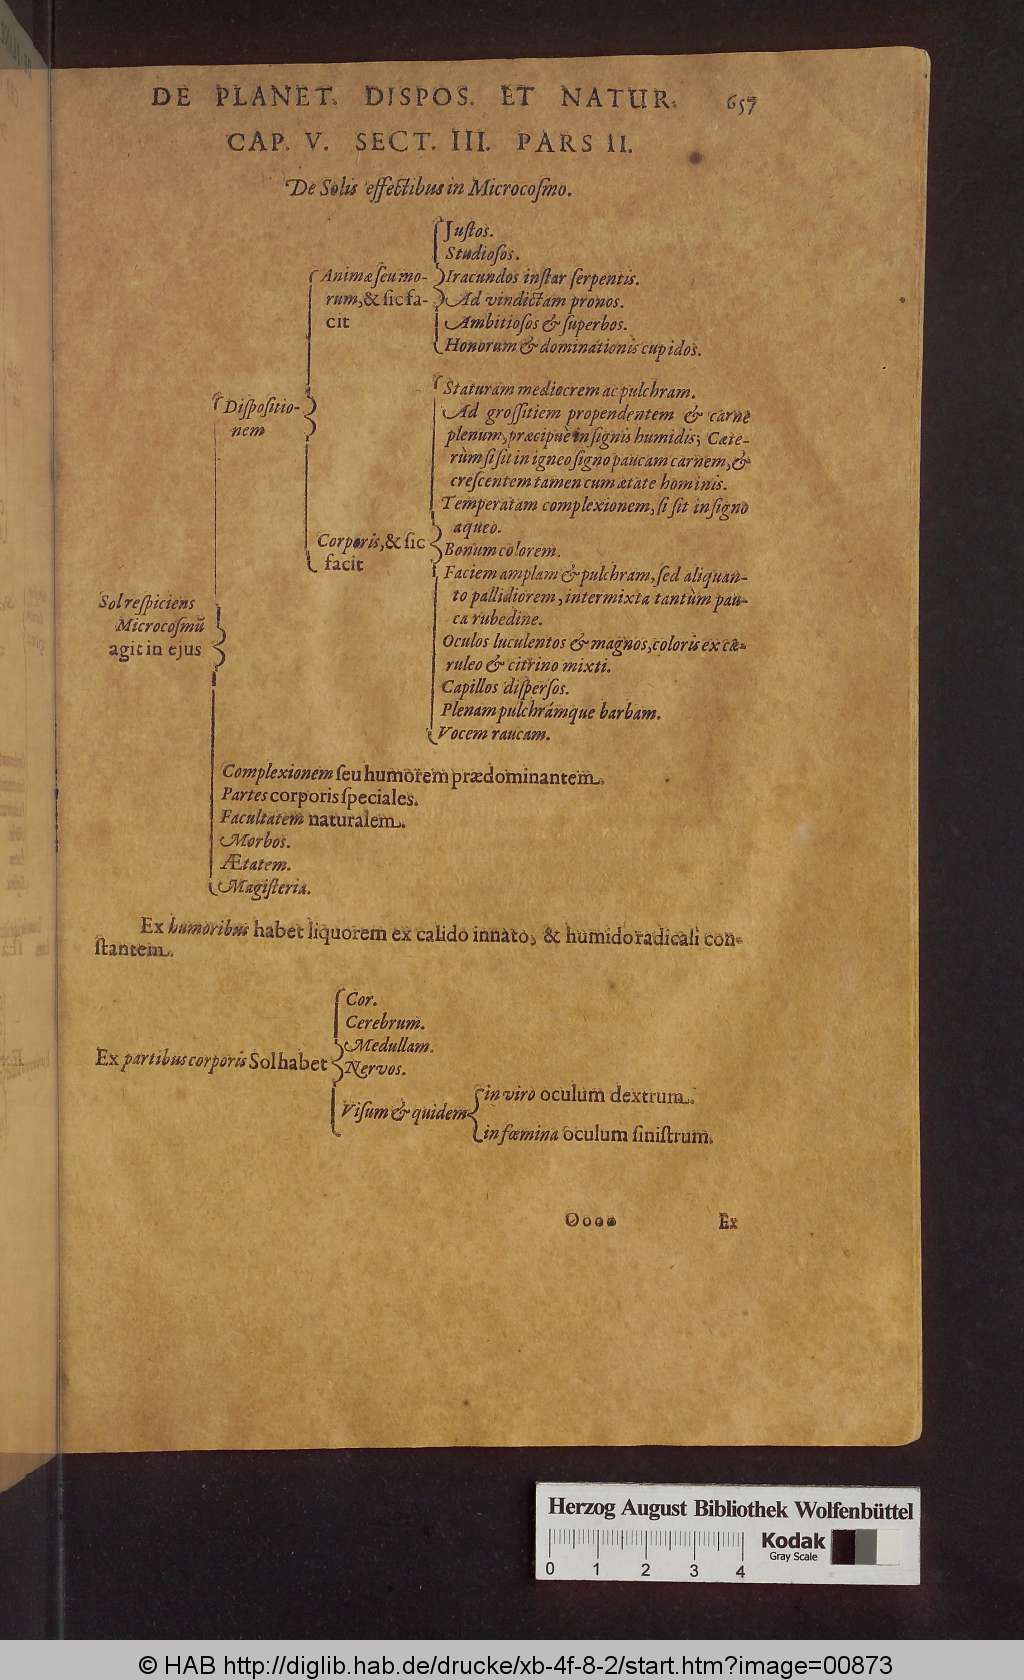 DE PLANET. DISPOS. ET NATUR. 657
CAP. V. SECT. III. PARS II.
De Solis effectibus in Microcoſmo.
Juſtos.
Studioſos.
Animæ ſeu mo-
rum, & ſic fa-
cit
Iracundos inſtar ſerpentis.
Ad vindictam pronos.
Ambitioſos & ſuperbos.
Honorum & dominationis cupidos.
Diſpoſitio-
nem
Staturam mediocrem ac pulchram.
Ad groſſitiem propendentem & carne
plenum, præcipuè in ſignis humidis; Cæte-
rùm ſi ſit in igneo ſigno paucam carnem, &
creſcentem tamen cum ætate hominis.
Temperatam complexionem, ſi ſit in ſigno
aqueo.
Corporis, & ſic
facit
Bonum colorem.
Faciem amplam & pulchram, ſed aliquan-
to pallidiorem, intermixta tantùm pau-
ca rubedine.
Sol reſpiciens
Microcoſmū
agit in ejus
Oculos luculentos & magnos, coloris ex cæ-
ruleo & citrino mixti.
Capillos diſperſos.
Plenam pulchrámque barbam.
Vocem raucam.
Complexionem ſeu humorem prædominantem.
Partes corporis ſpeciales.
Facultatem naturalem.
Morbos.
Ætatem.
Magiſteria.
Ex humoribus habet liquorem ex calido innato, & humido radicali con-
ſtantem.
Cor.
Cerebrum.
Ex partibus corporis Sol habet
Medullam.
Nervos.
Viſum & quidem
in viro oculum dextrum.
in fœmina oculum ſiniſtrum.
Oooo Ex
Herzog August Bibliothek Wolfenbüttel
Kodak
Gray Scale
0 1 2 3 4
© HAB http://diglib.hab.de/drucke/xb-4f-8-2/start.htm?image=00873